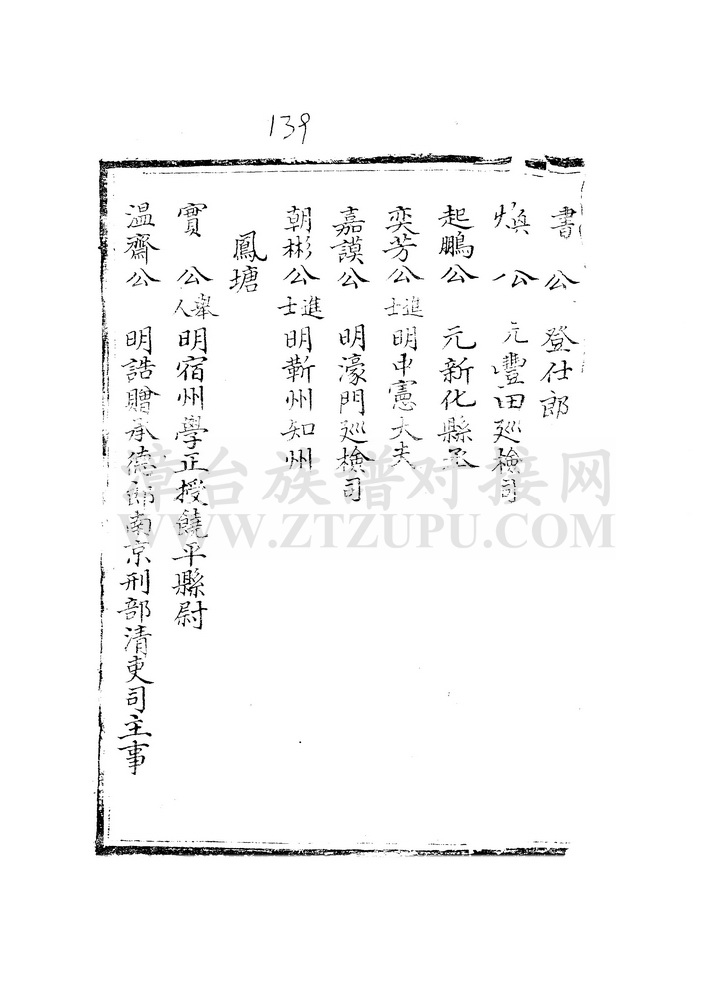 139
書公 登仕郎
煥公 元豐田廵檢司
起鵬公 元新化縣丞
奕芳公進士 明中憲大夫
嘉謨公 明濠門廵檢司
朝彬公進士 明蘄州知州
鳳塘
實公舉人 明宿州學正授饒平縣尉
溫齋公 明誥贈承德郎南京刑部清吏司主事
漳台族谱对接网
WWW.ZTZUPU.COM